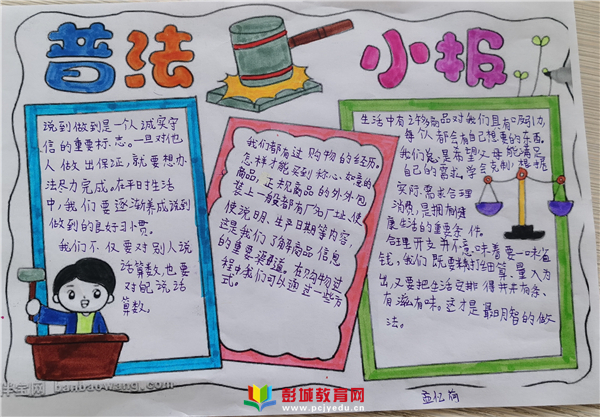 普法
小报
说到做到是一个诚实守
信的重要标志。一旦对他
人做出保证,就要想办
法尽力完成。在平时生活
中,我们要逐渐养成说到
做到的良好习惯。
我们不仅要对别人说
话算数,也要
对自己说话
算数。
我们都有过购物的经历。
怎样才能买到称心如意的
商品,正规商品的外外包
装上一般都有厂名厂址、使
使说明、生产日期等内容,
这是我们了解商品信息
的重要渠道。在购物过
程中我们可以通过一些方
式。
生活中有许多商品对我们具有吸引力,
每个人都会有自己想要的东西。
我们总是希望父母能满足
自己的需求。学会克制,想想
实际需求合理
消费,是拥有健
康生活的重要条件。
合理开支并不意味着要一味省
钱,我们既要精打细算、量入为
出,又要把生活安排得井井有条、
有滋有味。这才是最明智的做
法。
半宝网 banbaowang.com
彭城教育网
www.pcjyedu.cn